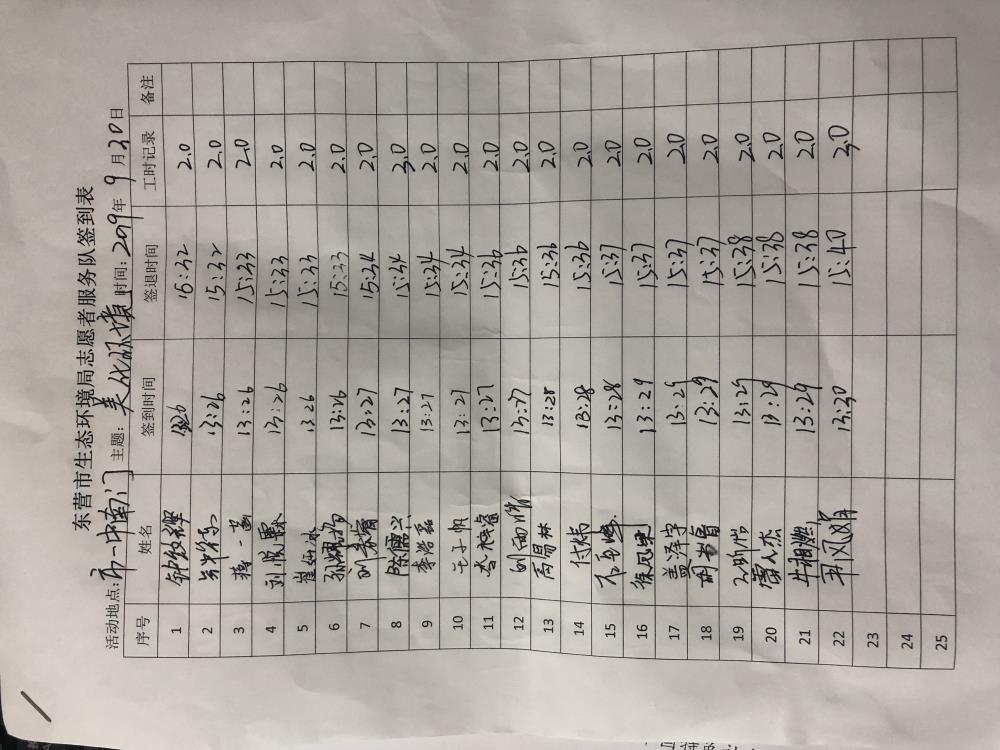 东营市生态环境局志愿者服务队签到表
活动地点：市一中南门 主题：美化环境 时间：2019年9月20日
序号 姓名 签到时间 签退时间 工时记录 备注
1 15:32 2.0
2 13:26 15:32 2.0
3 蒋一菡 13:26 15:33 2.0
4 13:26 15:33 2.0
5 13:26 15:33 2.0
6 13:26 15:33 2.0
7 13:27 15:34 2.0
8 13:27 15:34 2.0
9 李浩磊 13:27 15:34 2.0
10 于子帆 13:27 15:34 2.0
11 13:27 15:36 2.0
12 13:27 15:36 2.0
13 高易林 13:28 15:36 2.0
14 付炜 13:28 15:36 2.0
15 13:28 15:37 2.0
16 徐凤 13:29 15:37 2.0
17 盖泽宇 13:29 15:37 2.0
18 13:29 15:37 2.0
19 13:29 15:38 2.0
20 雷人杰 13:29 15:38 2.0
21 牛相燃 13:29 15:38 2.0
22 13:30 15:40 2.0
23
24
25